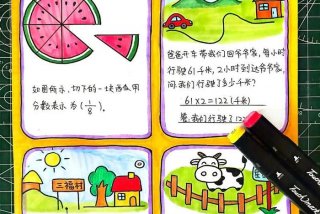 如图所示,切下的一块西瓜用
分数表示为(1/8)。
爸爸开车带我们回爷爷家,每小时
行驶61千米,2小时到达爷爷家,
问:我们行驶了多少千米?
61×2=122(千米)
答:我们行驶了122
三福村